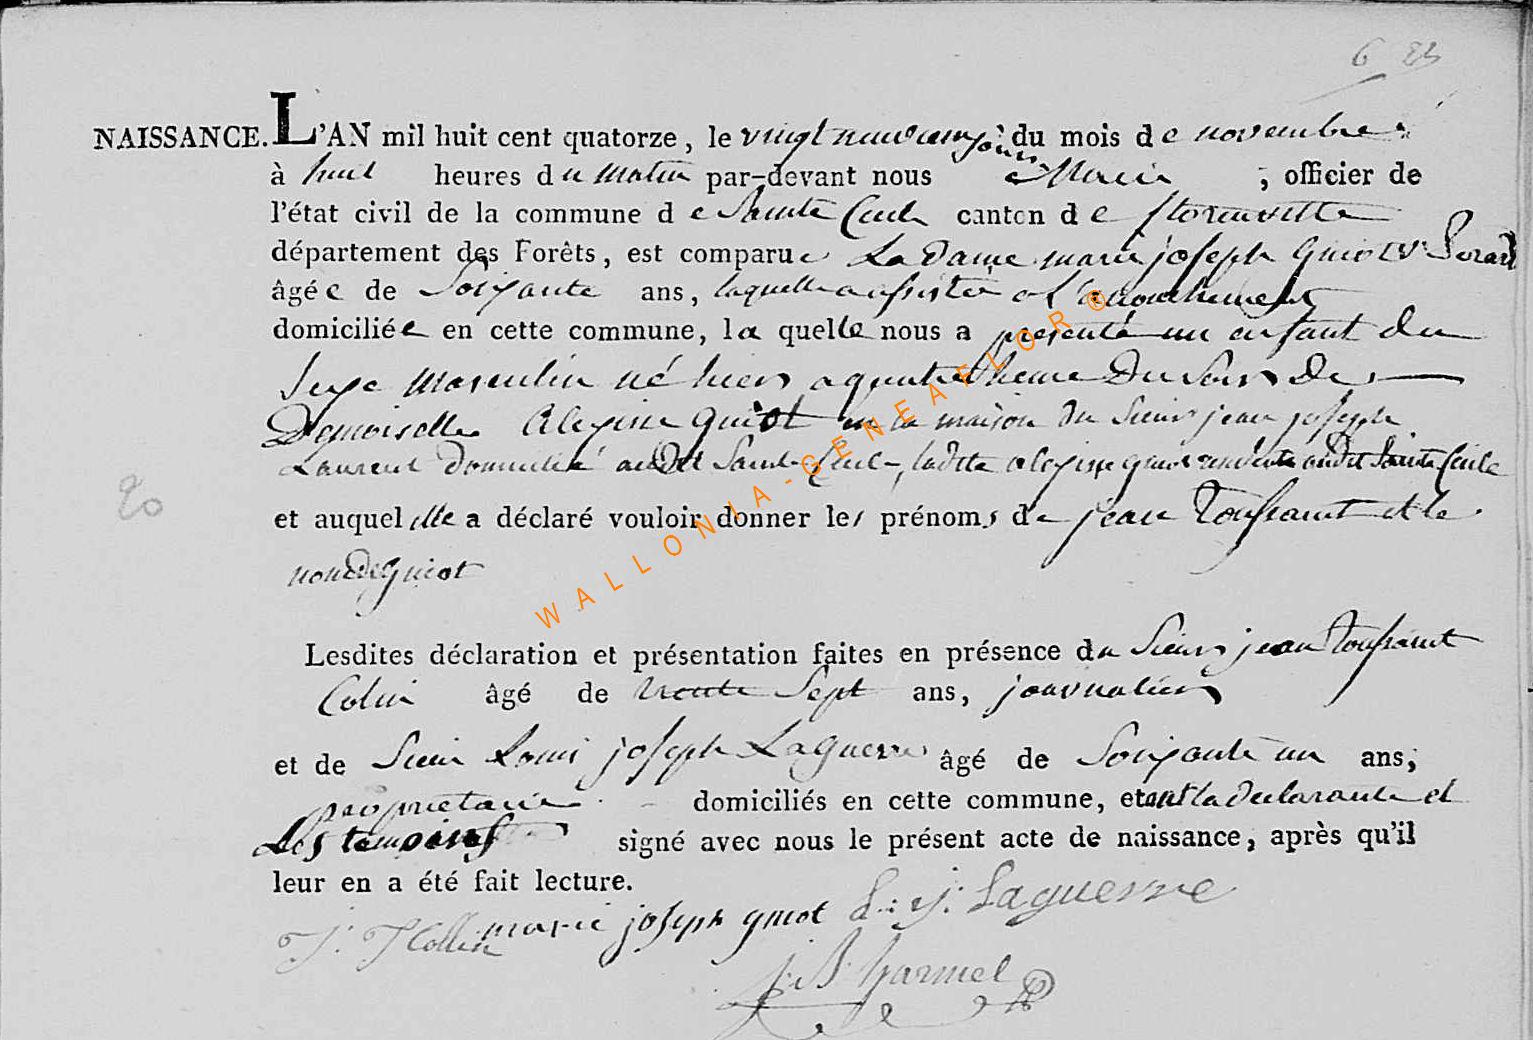 6 83
NAISSANCE. L'AN mil huit cent quatorze, le vingt neuviem jour du mois de novembre
à huit heures du matin par-devant nous Maire, officier de
l'état civil de la commune de Sainte Cecile canton de florenville
département des Forêts, est comparue La Dame marie joseph Guiot Ve
âgée de Soixante ans, laquelle a assistée a l'accouchement
domiciliée en cette commune, la quelle nous a presenté un enfant du
Sexe Masculin né hier a quatre heure Du Soir De
Demoiselle Alexine Guiot en la maison du Sieur jean joseph
Laurent Domicilié audit Sainte Cecile, ladite alexine guiot audit Sainte Cecile
et auquel elle a déclaré vouloir donner les prénoms de jean Toussaint et le
nom de Guiot
20
Lesdites déclaration et présentation faites en présence du Sieur jean Toussaint
Colin âgé de trente Sept ans, journalier
et de Sieur Louis joseph Laguerre âgé de Soixante un ans,
proprietaire domiciliés en cette commune, et ont la declarante et
Les temoins signé avec nous le présent acte de naissance, après qu'il
leur en a été fait lecture.
J. T Collin marie joseph guiot L. j. Laguerre
j. B. harmel
WALLONIA-GENEAELOR ®